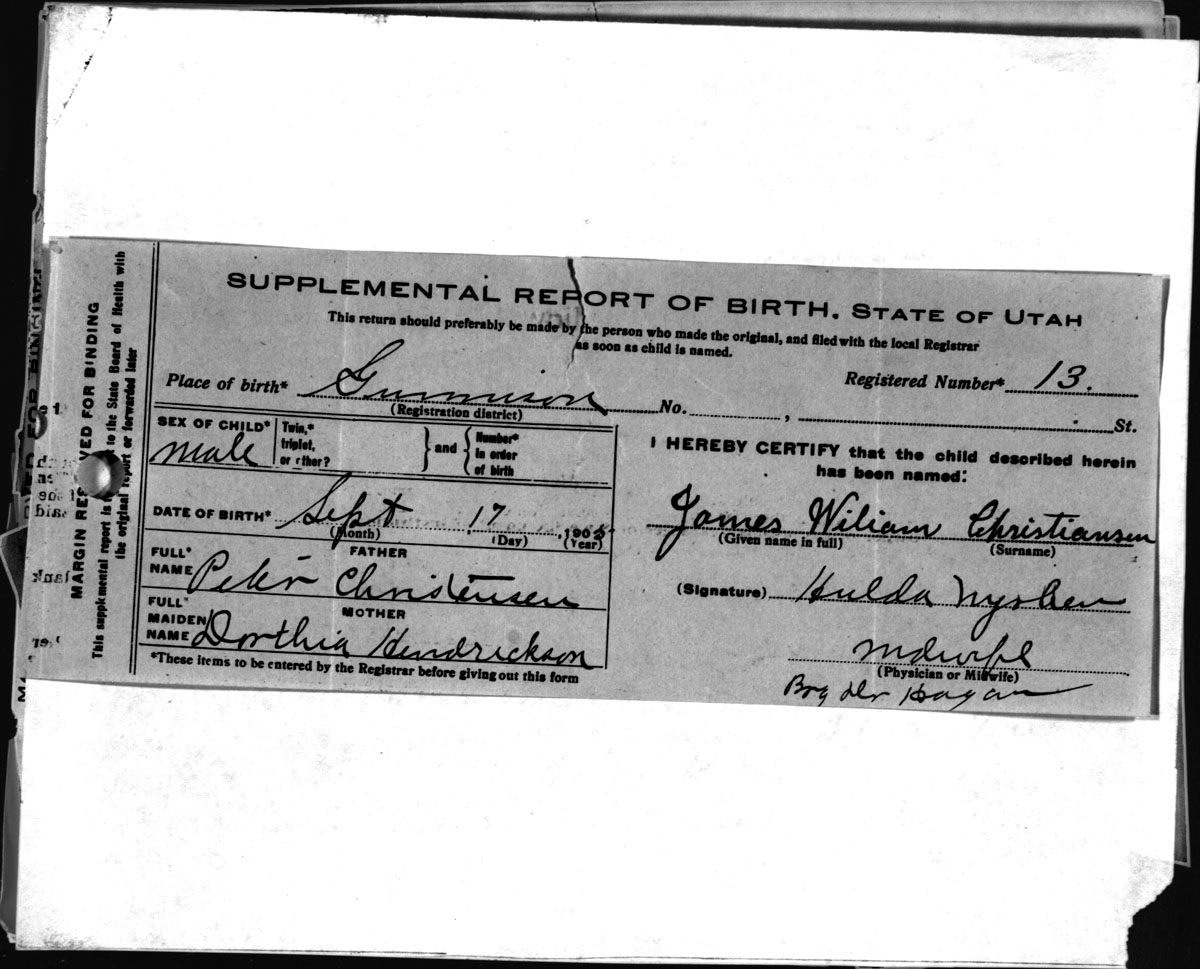 SUPPLEMENTAL REPORT OF BIRTH. STATE OF UTAH
This return should preferably be made by the person who made the original, and filed with the local Registrar
as soon as child is named.
Registered Number* 13.
Place of birth* Gunnison No. , St.
(Registration district)
SEX OF CHILD* male
Twin,*
triplet,
or other?
and
Number*
in order
of birth
DATE OF BIRTH* Sept 17 , 1905
(Month) (Day) (Year)
FATHER
FULL*
NAME Peter Christensen
MOTHER
FULL*
MAIDEN
NAME Dorthia Hendrickson
*These items to be entered by the Registrar before giving out this form
I HEREBY CERTIFY that the child described herein
has been named:
James Wiliam Christiansen
(Given name in full) (Surname)
(Signature) Hulda
Mdwife
(Physician or Midwife)
MARGIN RESERVED FOR BINDING
This supplemental report is to the State Board of Health with
the original report or forwarded later